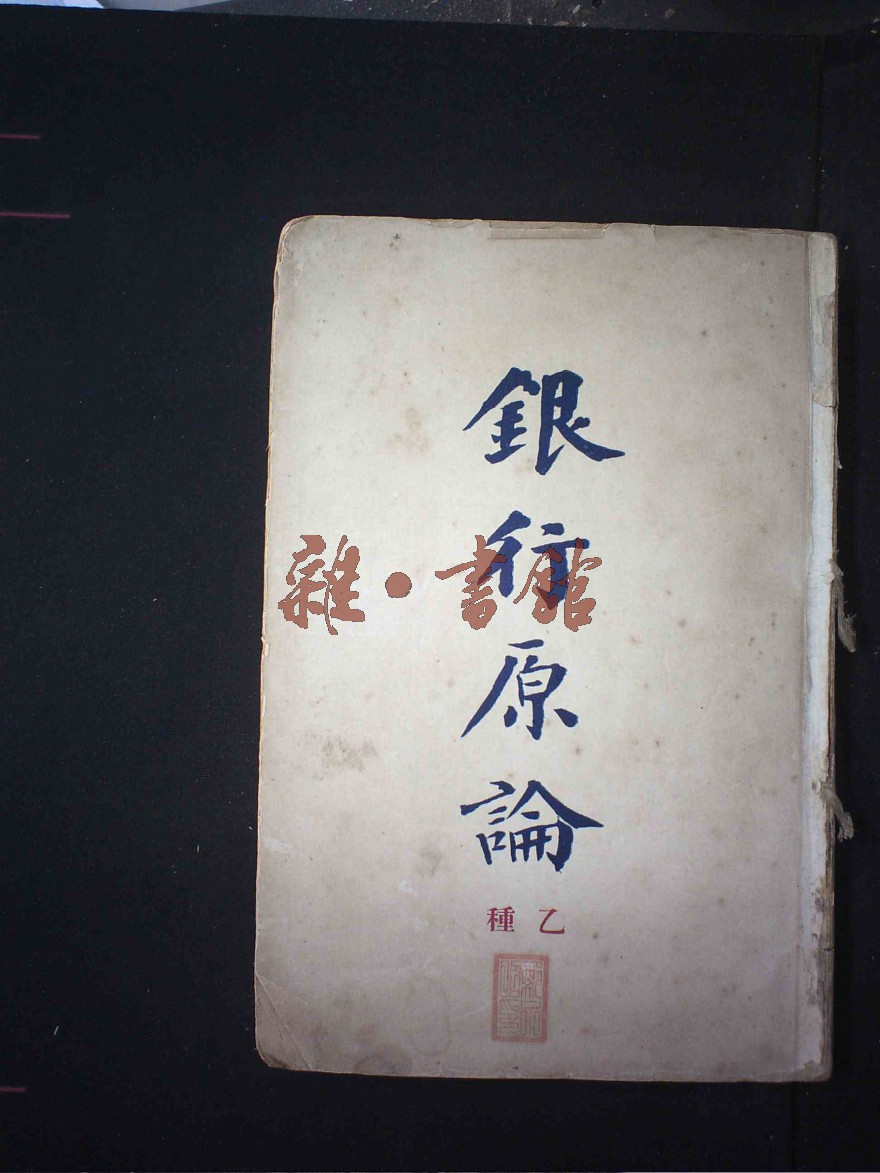 銀行原論
乙種
雜·書館